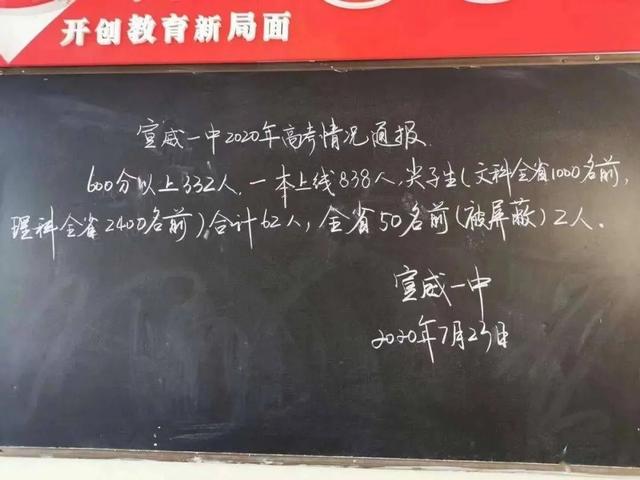 开创教育新局面
宣威一中2020年高考情况通报
600分以上332人,一本上线838人,尖子生(文科全省1000名前,
理科全省2400名前)合计62人,全省50名前(被屏蔽)2人.
宣威一中
2020年7月23日